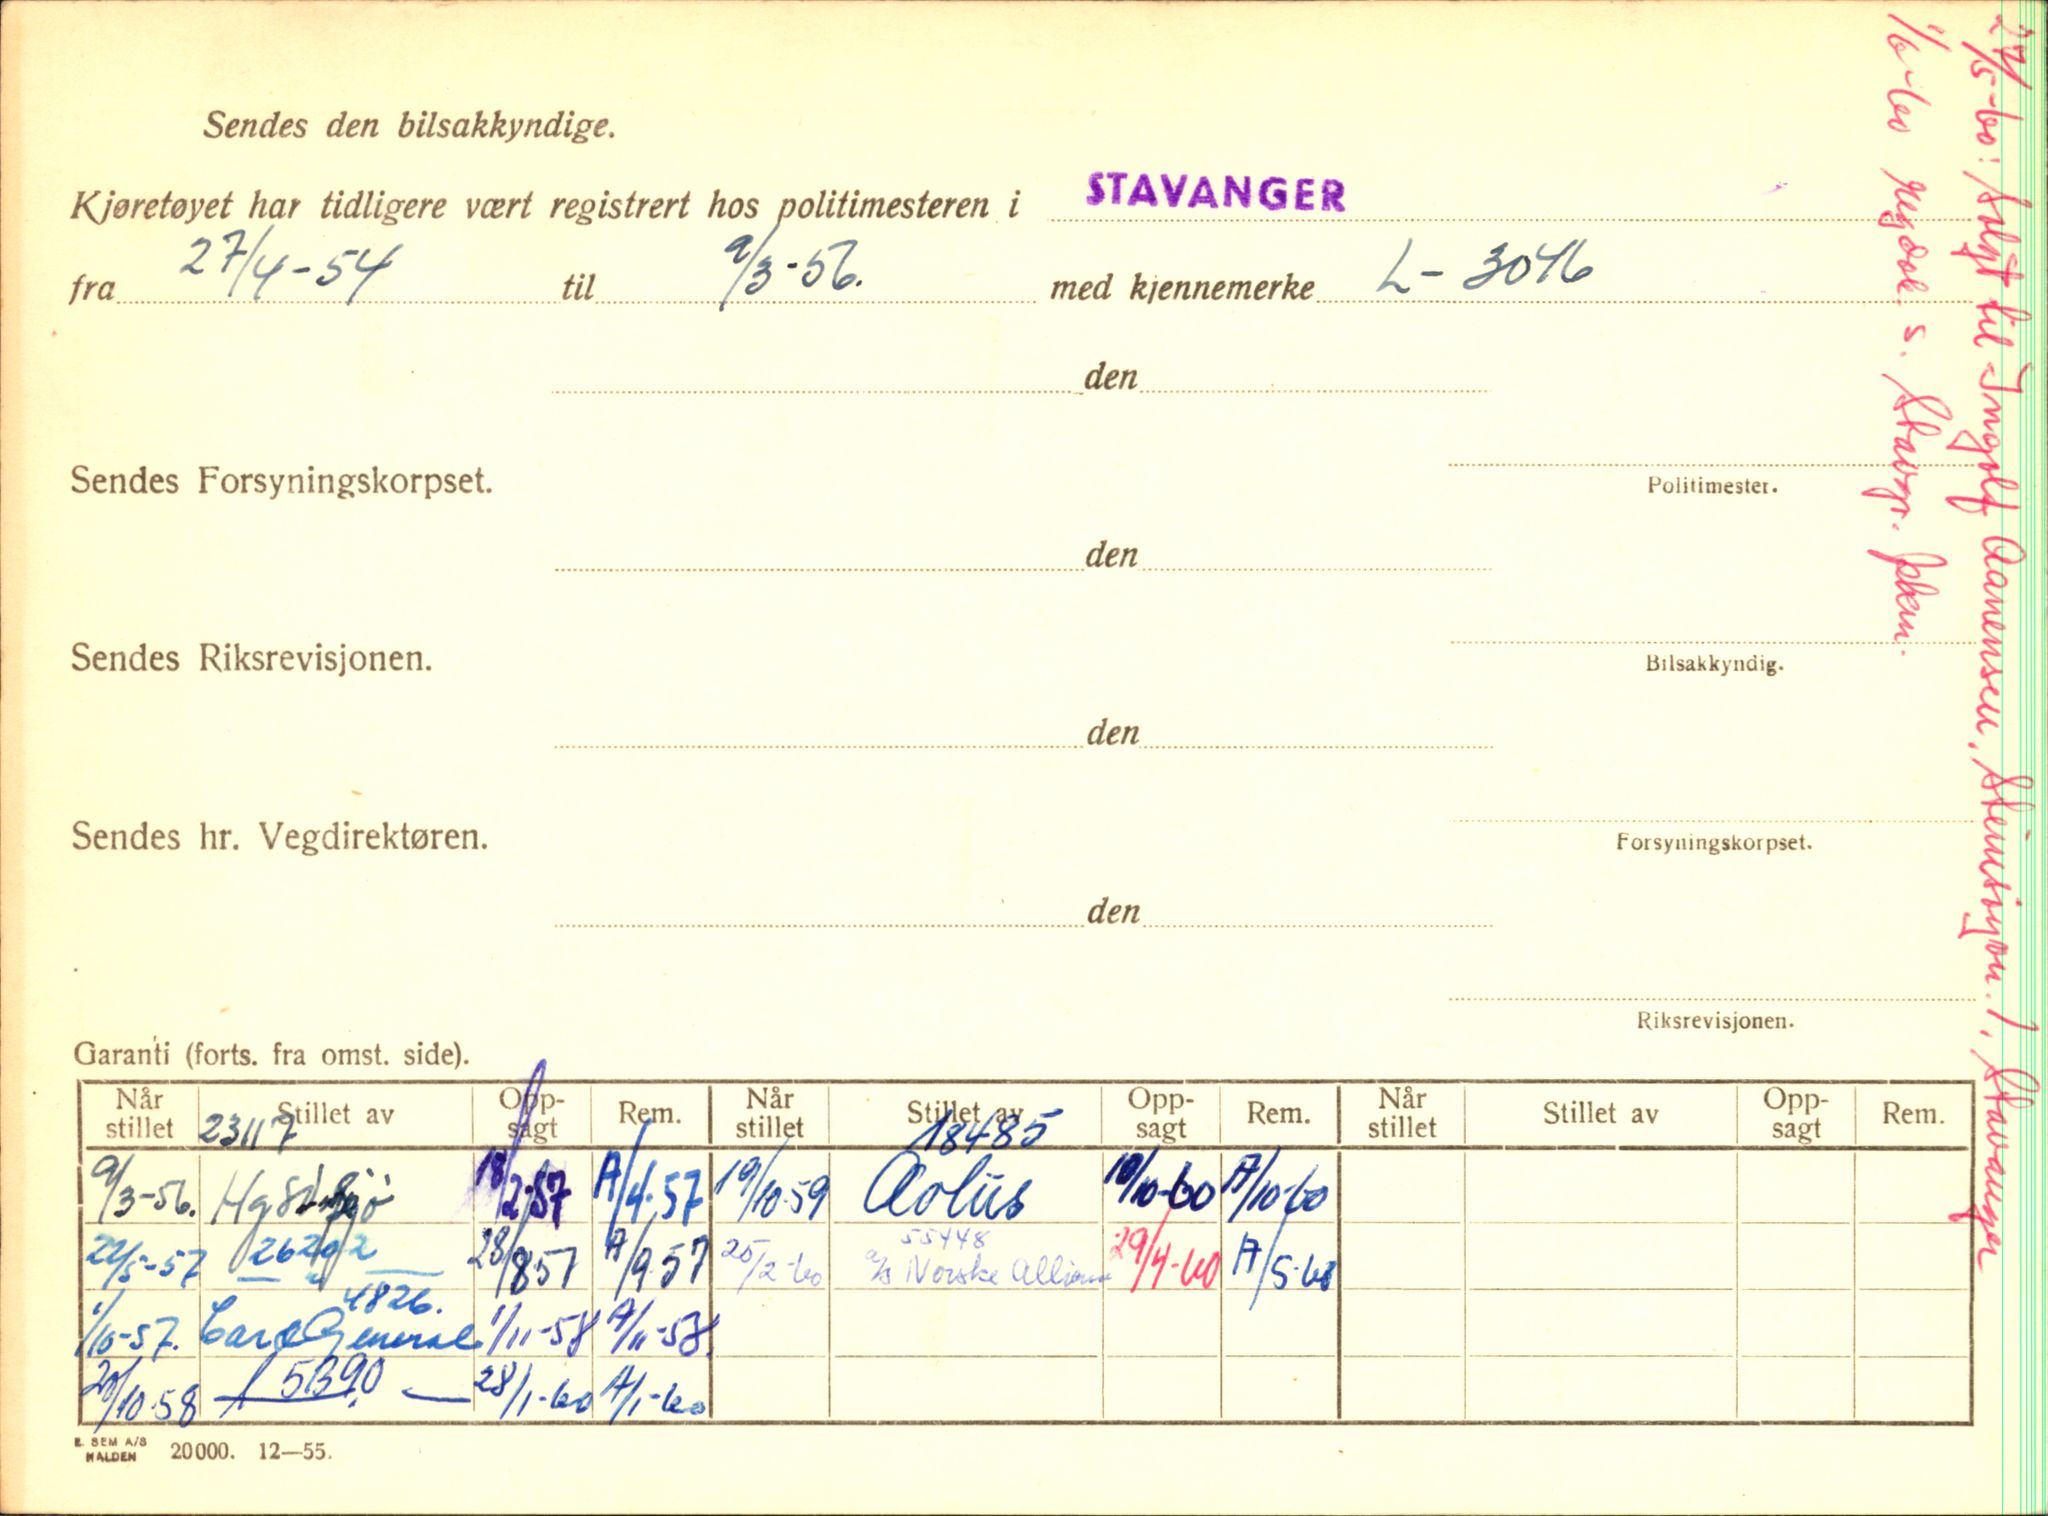 Sendes den bilsakkyndige.
Kjøretøyet har tidligere vært registrert hos politimesteren i STAVANGER
fra 27/4-54 til 9/3-56. med kjennemerke L- 3046
den
Sendes Forsyningskorpset.
Politimester.
den
Sendes Riksrevisjonen.
Bilsakkyndig.
den
Sendes hr. Vegdirektøren.
Forsyningskorpset.
den
Riksrevisjonen.
Garanti (forts. fra omst. side).
Når stillet Stillet av Opp-sagt Rem. Når stillet Stillet av Opp-sagt Rem. Når stillet Stillet av Opp-sagt Rem.
23117 18485
9/3-56. 18/2-57 A/4-57 19/10-59 Aolus 10/10-60 A/10-60
55448
22/5-57 26292 28/8-57 A/9-57 25/2-60 a/s Norske Allianse 29/4-60 A/5-60
4826.
1/10-57. Car & General 1/11-58 A/11-58.
20/10-58 5390 28/1-60 A/1-60
E. SEM A/S HALDEN 20000. 12—55.
27/5-60: Solgt til Ingolf Aanensen, Steinsøyvn. 1, Stavanger
1/6-60 s. Stavgr.